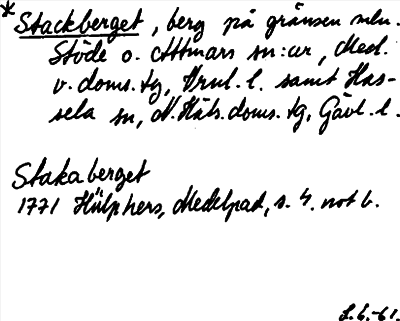 * Stackberget, berg på gränsen mln.
Stöde o. Attmars sn:ar, Med.
v. doms. tg, Vnrl. l. samt Has-
sela sn, N. Häls. doms. tg, Gävl. l.
Stakaberget
1771 Hülphers, Medelpad, s. 4. not b.
L. b. -61.